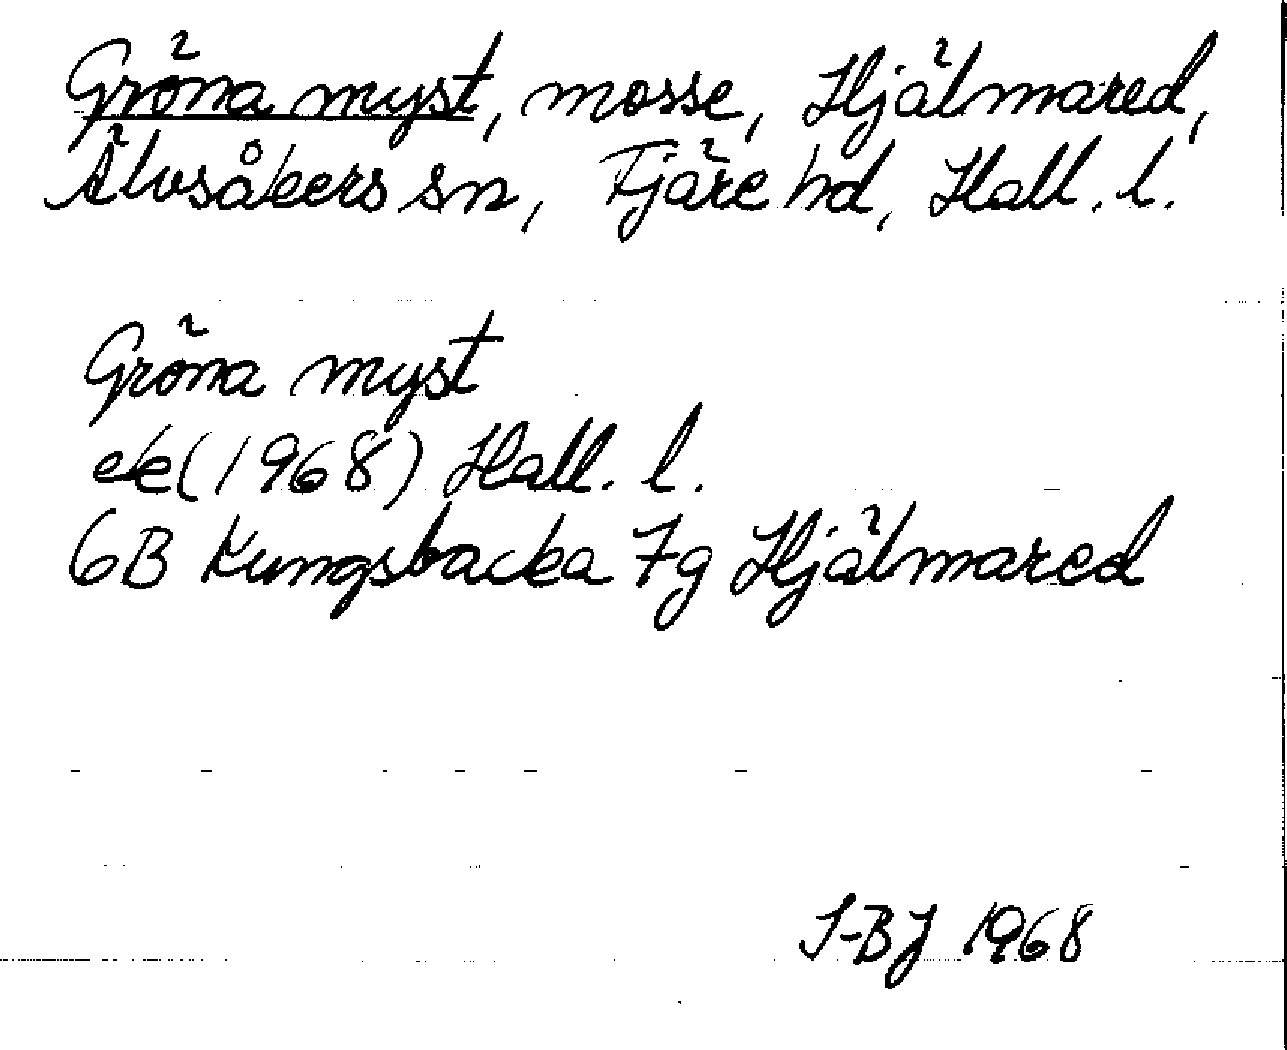 Gröna myst, mosse, Hjälmared,
Älvsåkers sn, Fjäre hd, Hall. l.
Gröna myst
ek (1968) Hall. l.
6B Kungsbacka 7g Hjälmared
I-BJ 1968